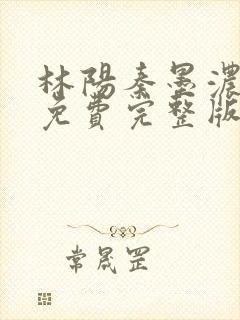 林陽秦墨濃
免費完整版
常晟罡